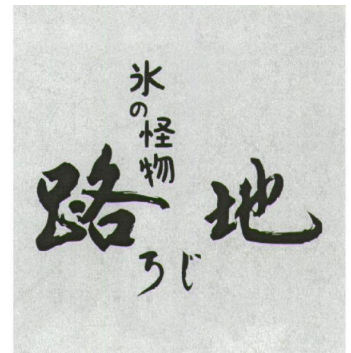 氷の怪物
路地
ろじ